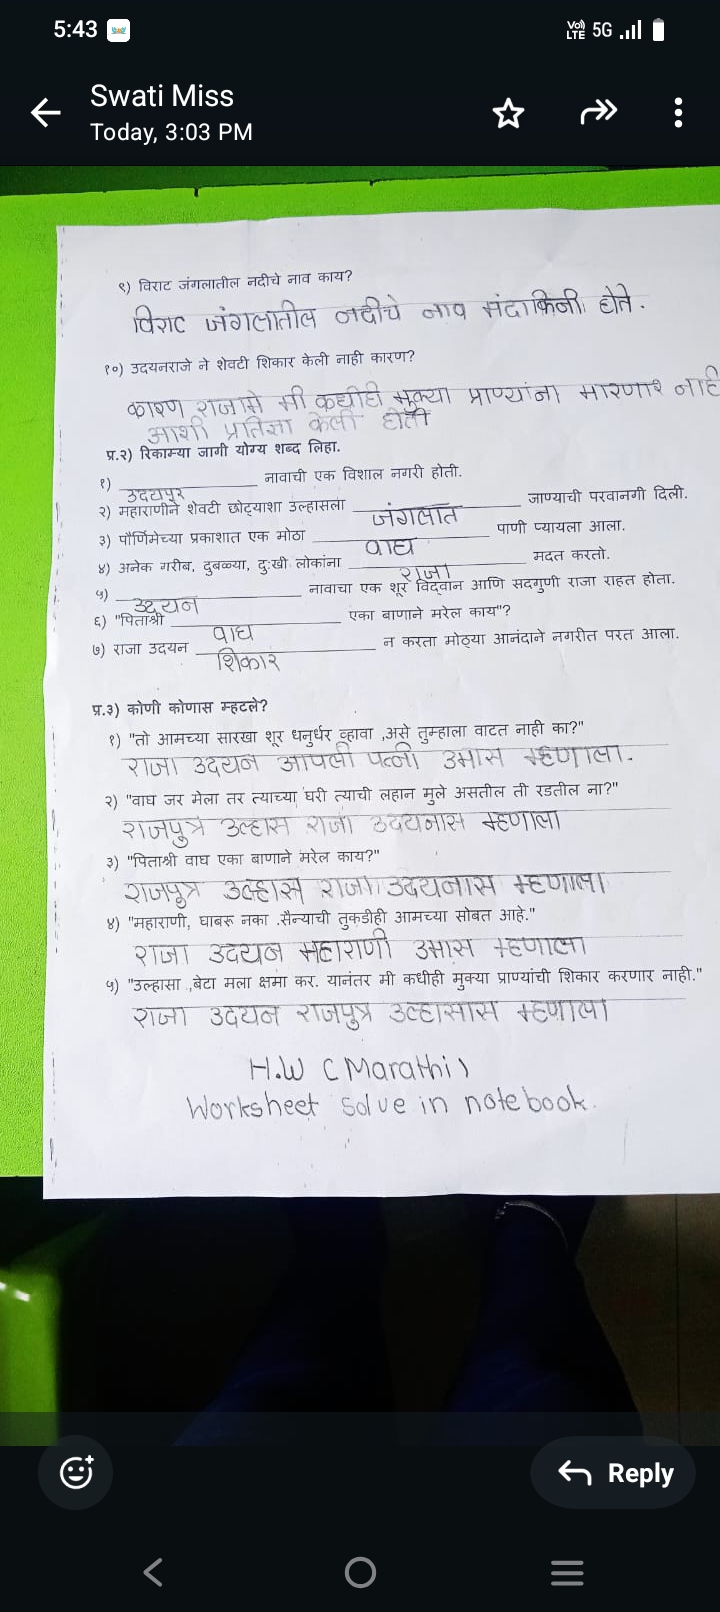 5:43
Vo) LTE 5G
Swati Miss
Today, 3:03 PM
९) विराट जंगलातील नदीचे नाव काय?
विराट जंगलातील नदीचे नाव मंदाकिनी होते.
१०) उदयनराजे ने शेवटी शिकार केली नाही कारण?
कारण राजामे मी कधीही मुक्या प्राण्यांना मारणार नाही
आशी प्रतिज्ञा केली होती
प्र.२) रिकाम्या जागी योग्य शब्द लिहा.
१) उदयपूर नावाची एक विशाल नगरी होती.
२) महाराणीने शेवटी छोट्याशा उल्हासला जंगलात जाण्याची परवानगी दिली.
३) पौर्णिमेच्या प्रकाशात एक मोठा वाघ पाणी प्यायला आला.
४) अनेक गरीब, दुबळ्या, दुःखी लोकांना राजा मदत करतो.
५) उदयन नावाचा एक शूर विद्वान आणि सदगुणी राजा राहत होता.
६) "पिताश्री वाघ एका बाणाने मरेल काय"?
७) राजा उदयन शिकार न करता मोठ्या आनंदाने नगरीत परत आला.
प्र.३) कोणी कोणास म्हटले?
१) "तो आमच्या सारखा शूर धनुर्धर व्हावा ,असे तुम्हाला वाटत नाही का?"
राजा उदयन आपली पत्नी उमास म्हणाला.
२) "वाघ जर मेला तर त्याच्या घरी त्याची लहान मुले असतील ती रडतील ना?"
राजपुत्र उल्हास राजा उदयनास म्हणाला
३) "पिताश्री वाघ एका बाणाने मरेल काय?"
राजपुत्र उल्हास राजा उदयनास म्हणाला
४) "महाराणी, घाबरू नका .सैन्याची तुकडीही आमच्या सोबत आहे."
राजा उदयन महाराणी उमास म्हणाला
५) "उल्हासा ,बेटा मला क्षमा कर. यानंतर मी कधीही मुक्या प्राण्यांची शिकार करणार नाही."
राजा उदयन राजपुत्र उल्हासास म्हणाला
H.W (Marathi)
Worksheet solve in notebook.
Reply